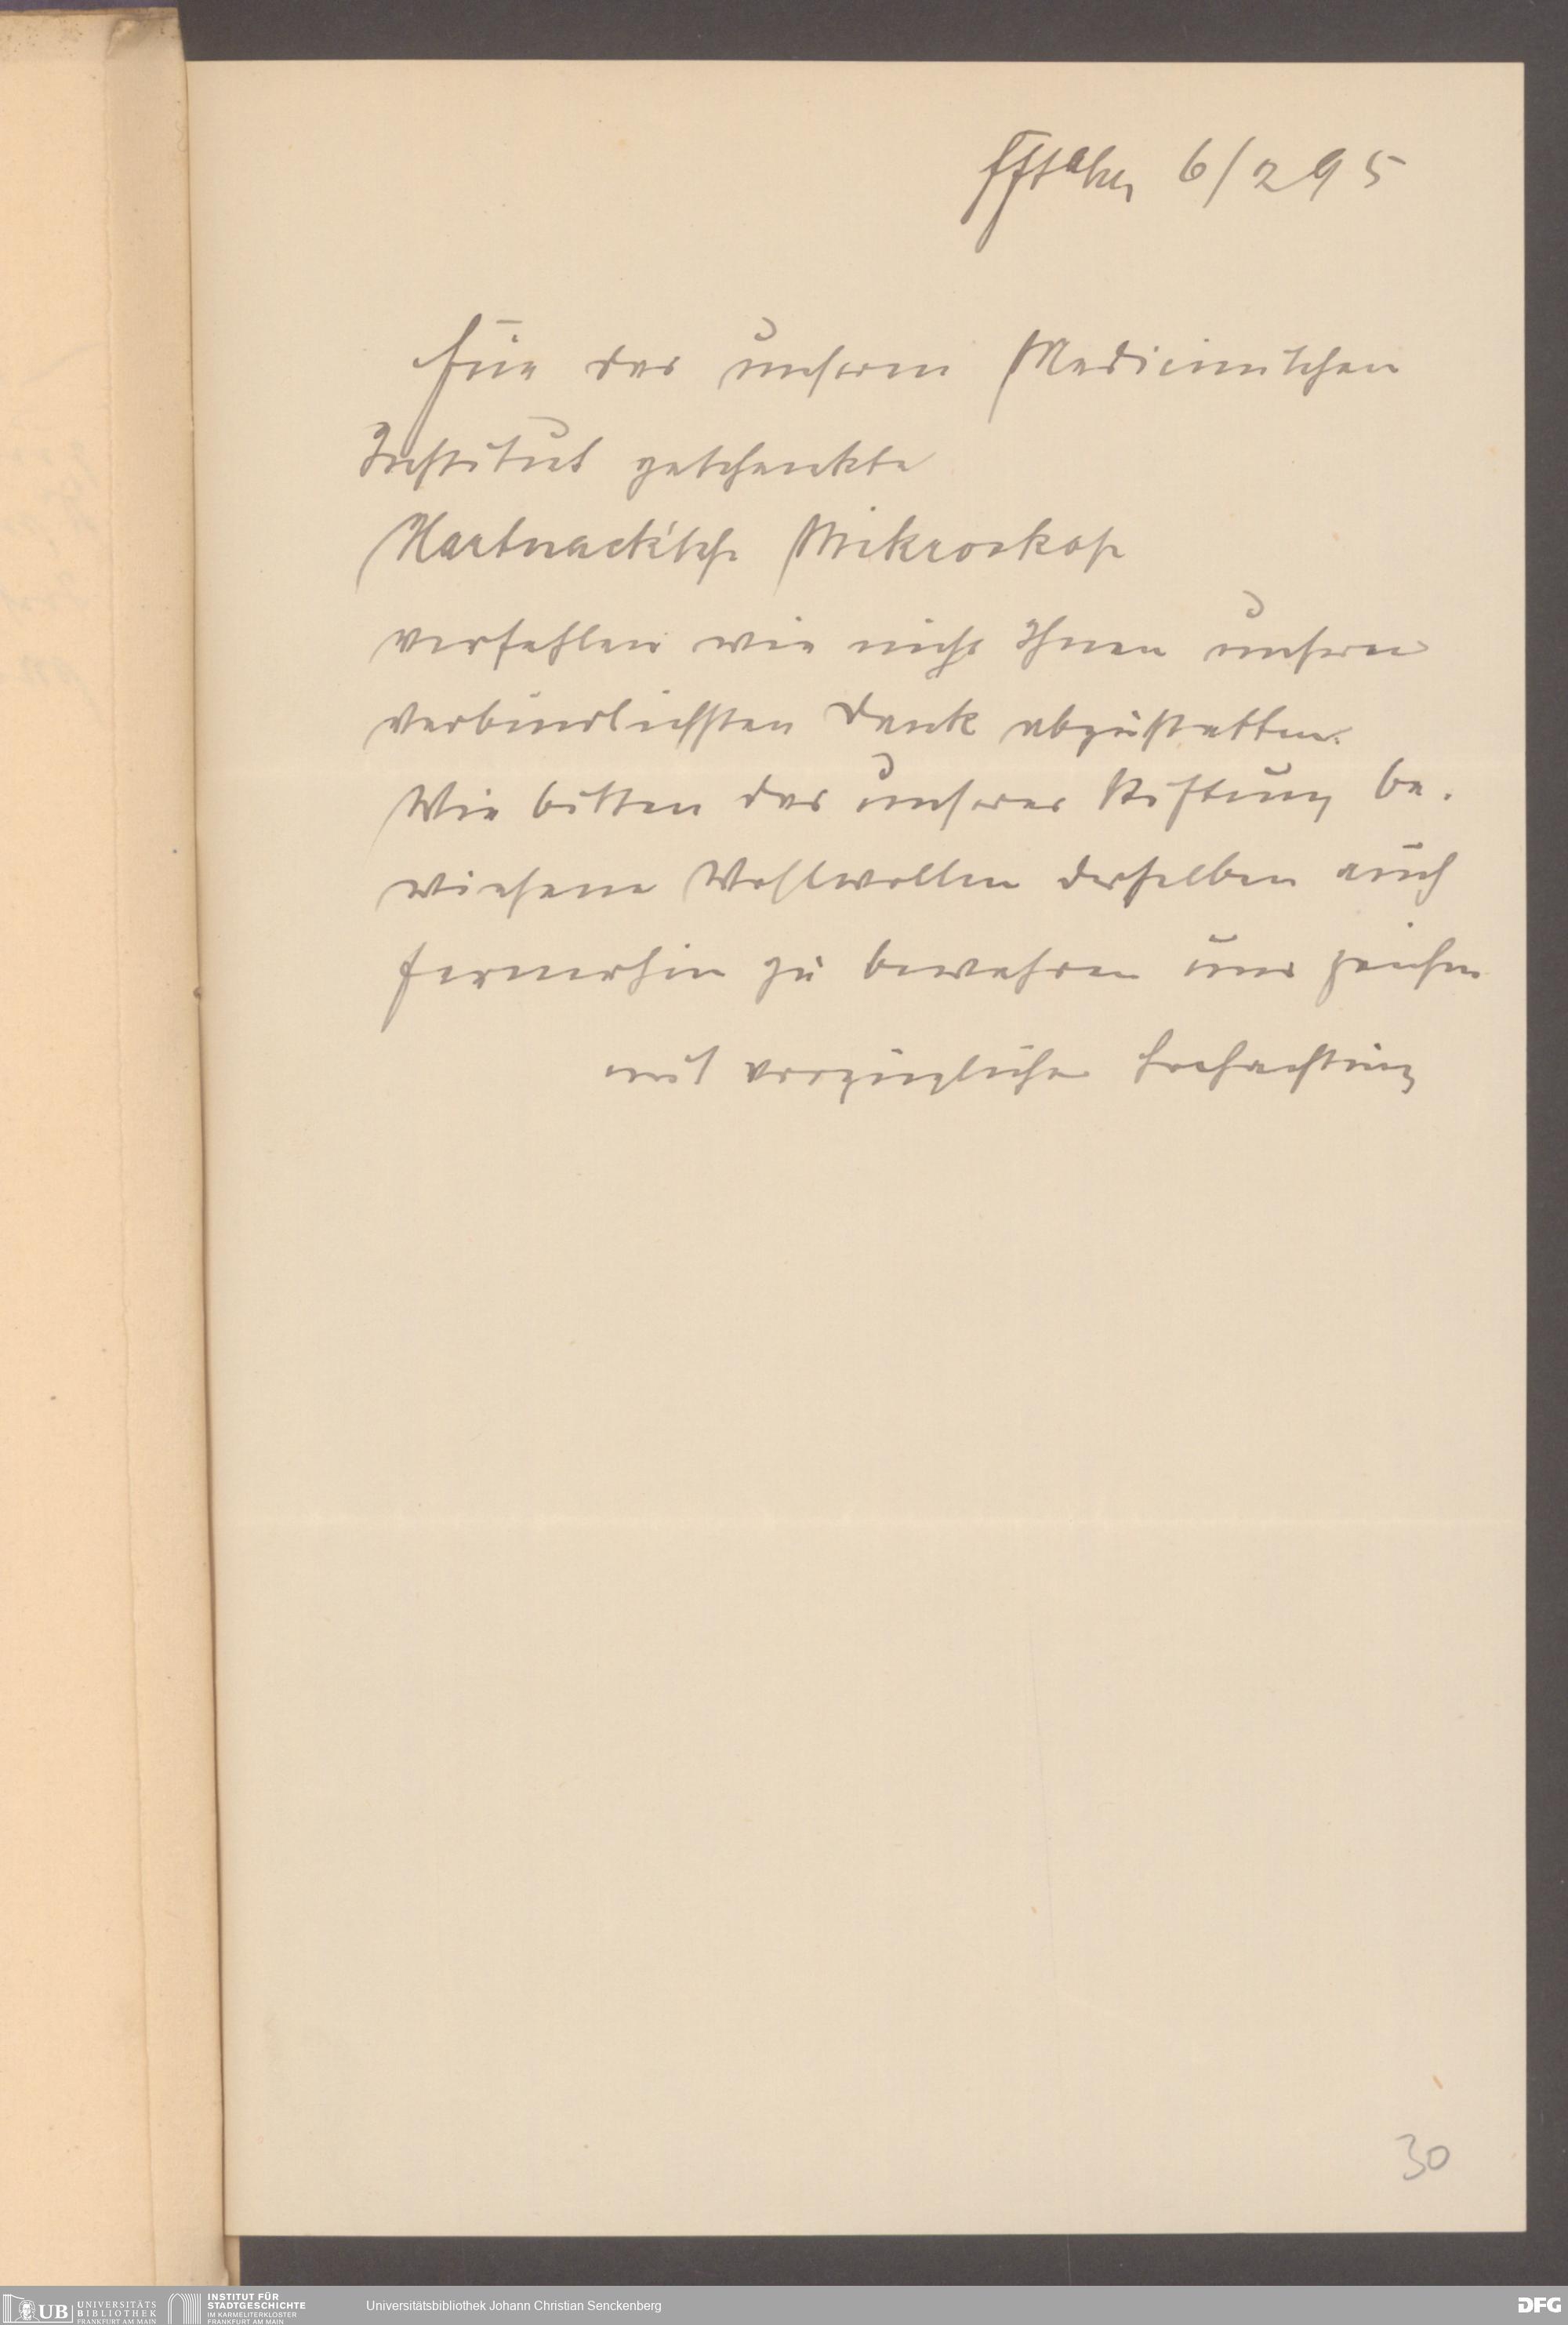 6/2 95
Für das unserem Medicinischen
Institut geschenkte
Hartnack'sche Mikroskop
verfehlen wir nicht Ihnen unseren
verbindlichsten Dank abzustatten.
Wir bitten das unserer Stiftung be-
wiesene Wohlwollen derselben auch
fernerhin zu bewahren und zeichnen
mit vorzüglicher Hochachtung
30
UB UNIVERSITÄTS BIBLIOTHEK FRANKFURT AM MAIN
INSTITUT FÜR STADTGESCHICHTE IM KARMELITERKLOSTER FRANKFURT AM MAIN
Universitätsbibliothek Johann Christian Senckenberg
DFG